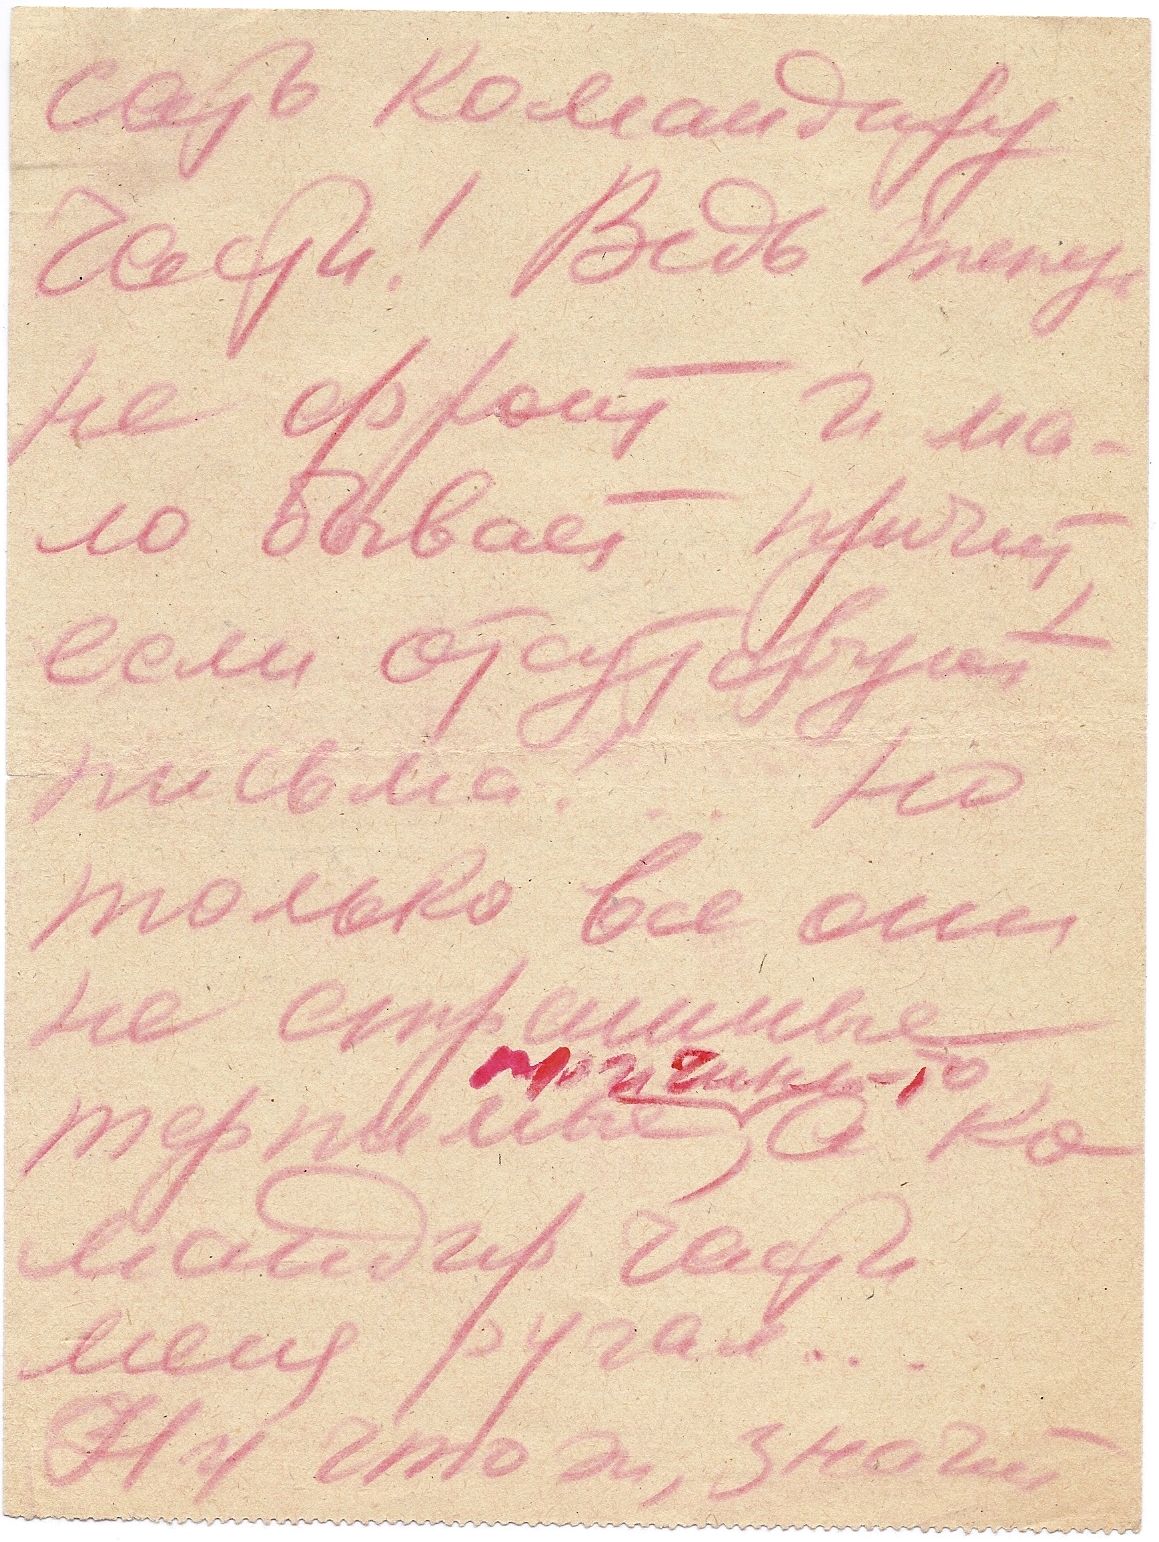 сать командиру
части! Ведь теперь
не фронт и ма-
ло бывает причин,
если отсутствуют
письма... но
только все они
не страшные
причины-то
терпимые, а ко
мандир части
меня ругал...
Ну что ж, значит